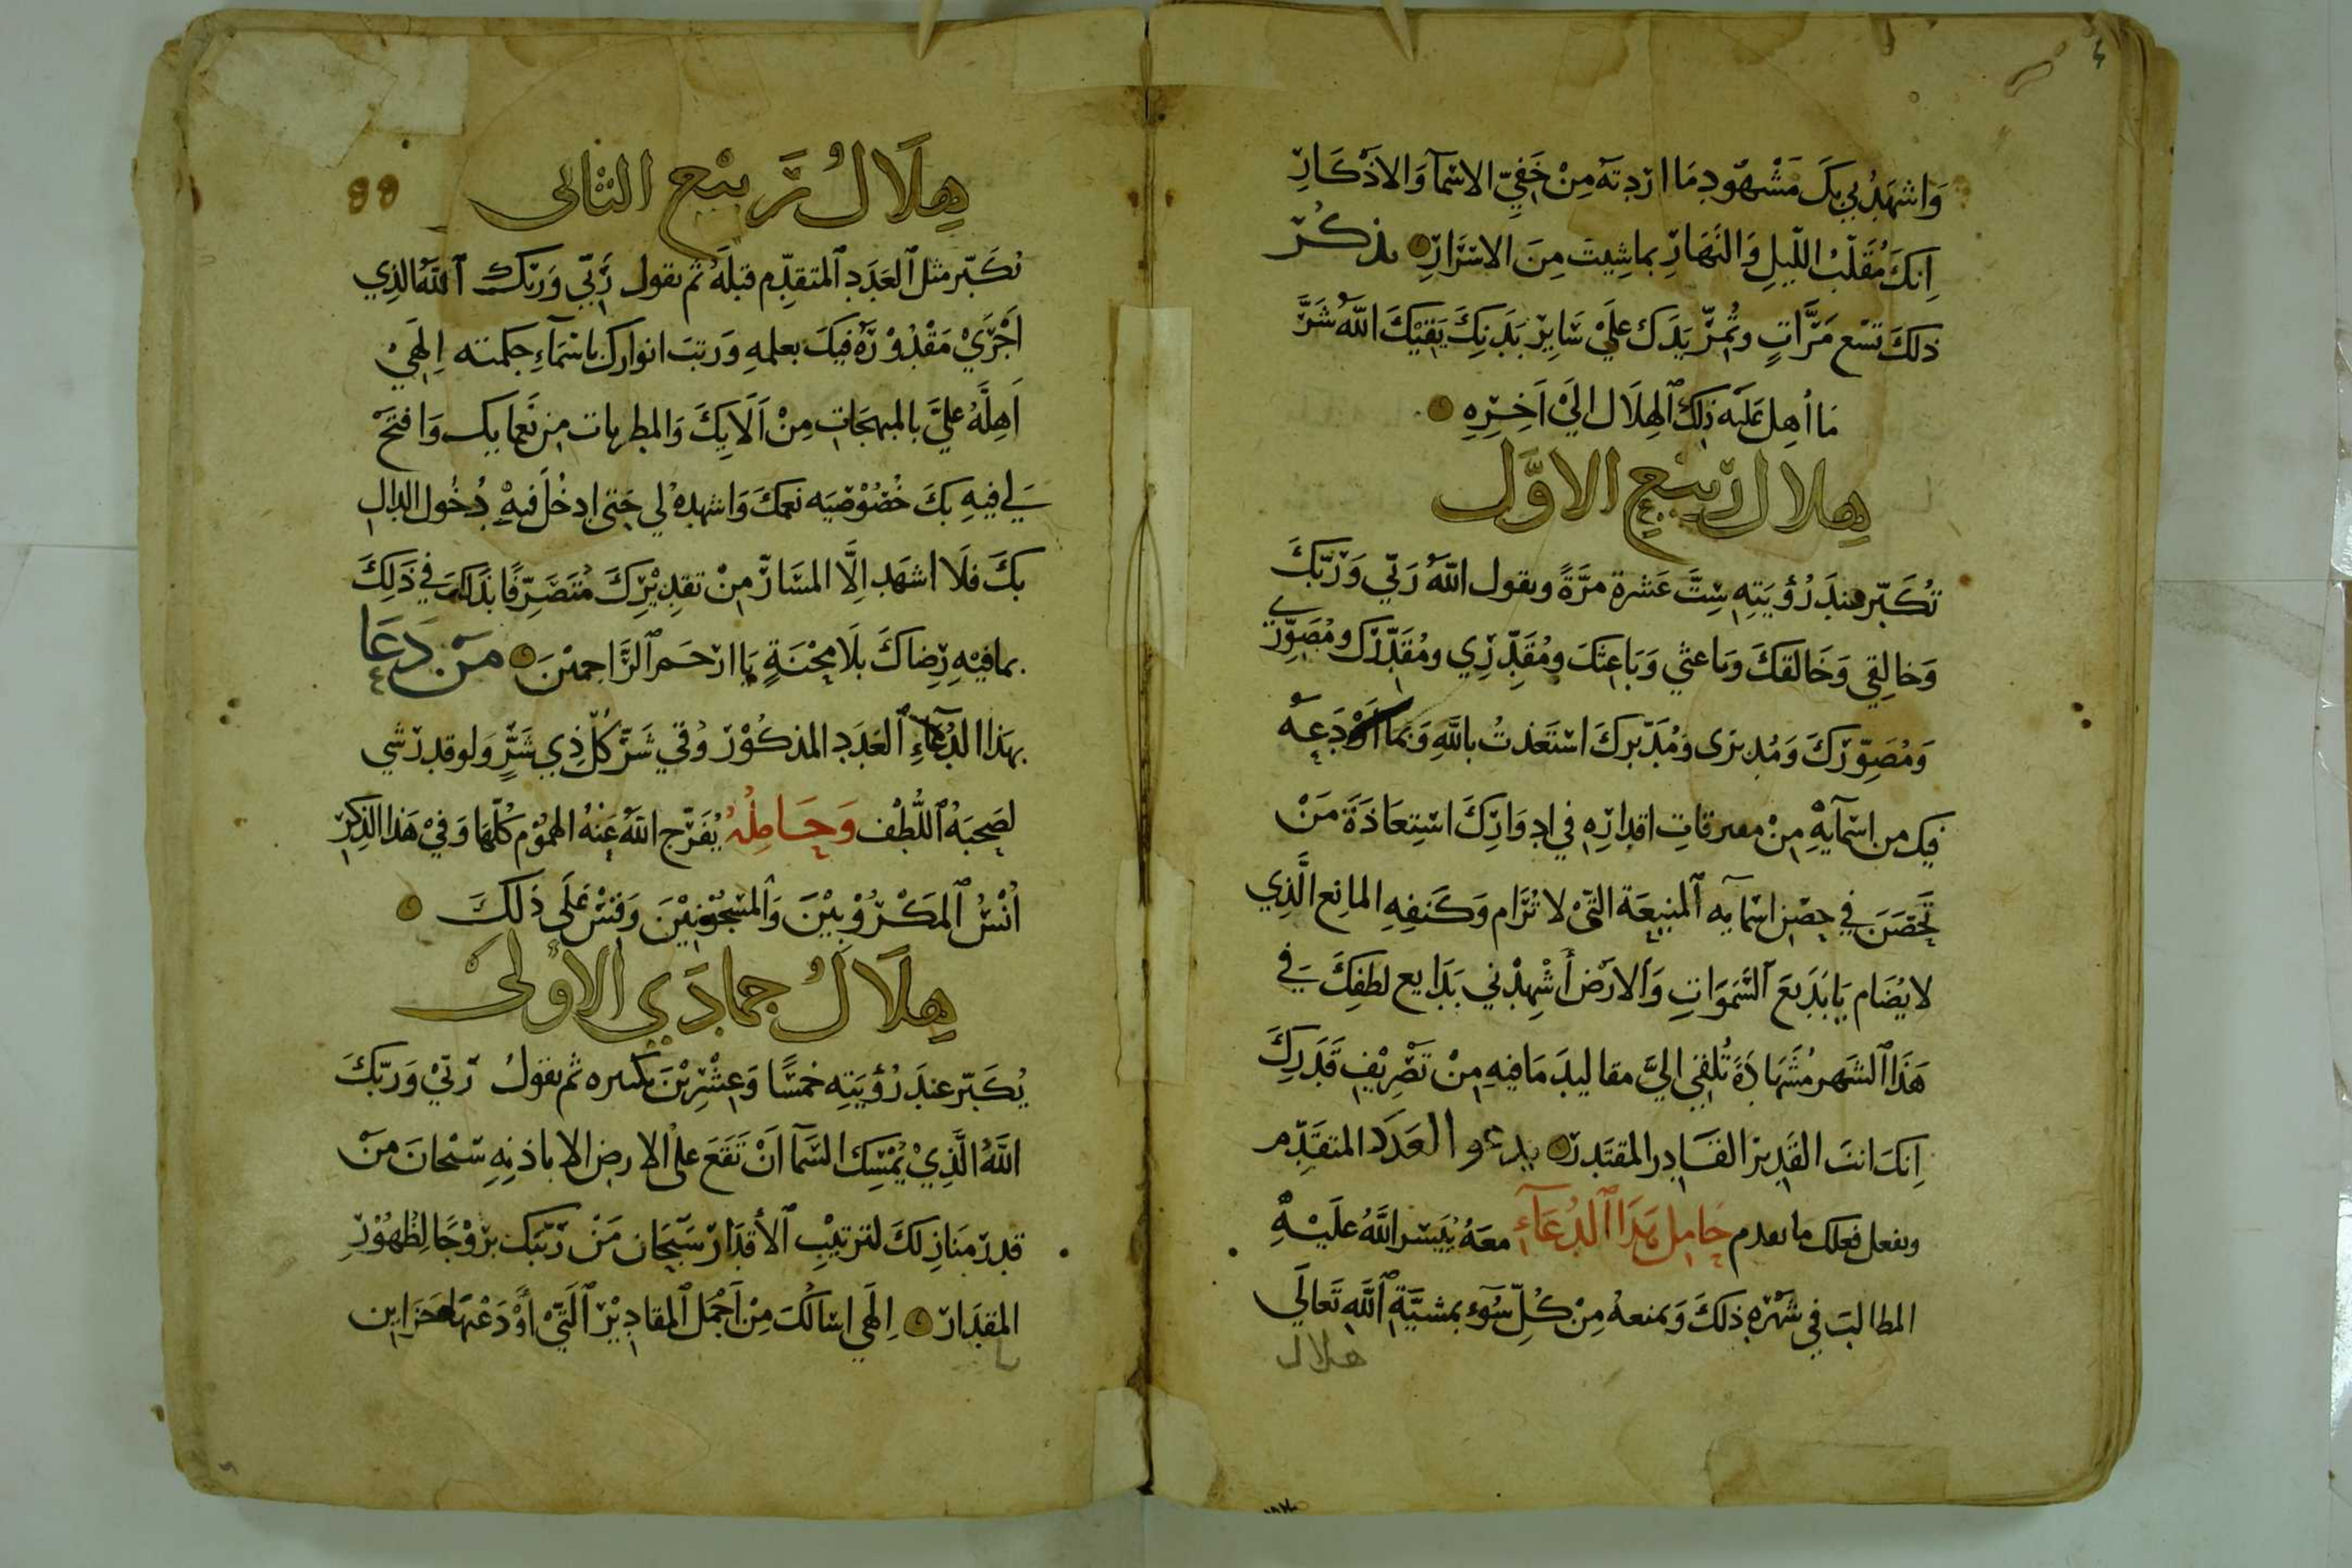 ٤
وَاشهَدُ بي بِكَ مَشْهُود مَا اردته مِنْ خَفِيِّ الاسْمآ وَالاذْكَارِ
اِنكَ مُقَلّبُ اللّيلِ وَالنَهَارِ بما شِيتَ مِنَ الاسْرَارِ يذكُر
ذلكَ تسْع مَرَّاتٍ وتُمِرّ يَدَك عليَ سَايِر بَدَنِكَ يَقيْكَ اللهُ شَرَّ
مَا أهِل عَلَيْه ذلِكَ الهِلَال اليَ آخِرِهِ
هلال ربيع الاوَّل
تُكَبّر عندَ رُؤيَتِه سِتَّ عَشرة مرَّةً وتقول اللهُ رَبّي وَرَبّكَ
وَخالِقي وَخَالقكَ وباعثي وَبَاعثكَ ومُقَدِّري ومُقَدّرك ومُصَوّري
وَمُصَوّرَكَ وَمُدبرى وَمُدَبّركَ اسْتَعَذتُ باللهِ وَبمَا اوْدَعِهُ
فيك من اسْمآيهِ مِنْ مفرقاتِ اقدارِه في ادوَارِكَ اسْتِعَاذَةَ مَنْ
تَحَصَنَ في حِصْن اسْمايه المنيعَة التيْ لا تُرَام وَكَنَفِهِ المانع الَّذِي
لا يُضَام يَا بَدَيعَ السَّموَاتِ وَالارْض أشْهِدْني بَدَايع لطفِكَ في
هَذَا الشَهر مُشَهَادَةً تُلقي اليَّ مقاليدَ مَا فيهِ مِنْ تَصْرِيْفِ قَدَرِكَ
اِنكَ انتَ القَدِير القَادِر المقتَدر يدعو العَدَد المتقدِّم
وتفعل فعلك ما تقدم حَامِل هَذَا الدُعَآءِ معَهُ يُيَسّر اللَّهُ عَلَيْهِ
المطالبَ في شَهْرِهِ ذلكَ وَيمنعهُ مِنْ كُلِّ سُوءٍ بمشيَّةِ اللهِ تَعَالَي
هلال
هِلَالُ رَبيْع الثانى
تُكَبّر مثل العَدَدِ المتقدِّم قبلَهُ ثم تقول رَبّي وَرَبّك اللهُ الذِي
اَجْرَيْ مَقْدُوْرَهُ فيكَ بعلمهِ وَرتبَ انوارك باسْمَآءِ حكمته اِلهَيْ
اَهِلَّهُ عليَّ بالمبهجَاتِ مِنْ آلَايِكَ وَالمطربات من نَعمايك وَافتَحْ
لي فيهِ بكَ خُصُوْصيَه نعمكَ وَاشهدهُ لي حَتى ادخُل فيهْ دُخُول الدال
بكَ فلَا اشهَد اِلَّا المسَارّ مِنْ تقدِيْرِكَ مُتَصَرِّفًا بذَلكَ في ذَلِكَ
بما فيْهِ رِضاكَ بلَا مِحْنَةٍ يَا ارْحَم الرَّاحِميْنَ مَنْ دَعَا
بهَذا الدُعَاءِ العَدَد المذكُوْر وُقي شَرّ كُلّ ذِي شَرٍّ وَلو قدرشي
لصَحِبَهُ اللُّطْف وَحَامِلُهُ يُفَرّج اللهُ عَنْهُ الهمُوْم كُلّهَا وَفيْ هَذا الذِكرِ
اُنْسُ المَكْرُوْبيْنَ وَالمَسْجُوْنِيْنَ وَقِسْ عَلَى ذَلكَ
هِلَالُ جمادَي الاوُلَى
يُكَبّر عندَ رُؤيَتِه خمسًا وَعِشْرِيْنَ تكبيره ثم تقولُ رَبّيْ وَرَبّكَ
اللَّهُ الَّذِيْ يُمْسِك السَّمآ اَنْ تَقَعَ على الارض الا باذنِهِ سُبْحَانَ مَنْ
قدر مَنَازِلَكَ لترتيْبِ الأقدَار سُبْحَان مَنْ رَتبَك بُرُوْجًا لِظُهُوْرِ
المقدَار اِلَهي اسَالُكَ مِنْ اَجْمَل المقادِيْر اَلَتيْ أوْدَعْتَهَا خَزَاين